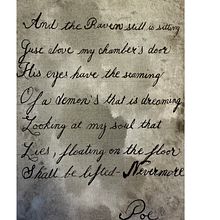 And the Raven still is sitting
Just above my chamber's door
His eyes have the seeming
Of a demon's that is dreaming
Looking at my soul that
Lies, floating on the floor
Shall be lifted - Nevermore
Poe